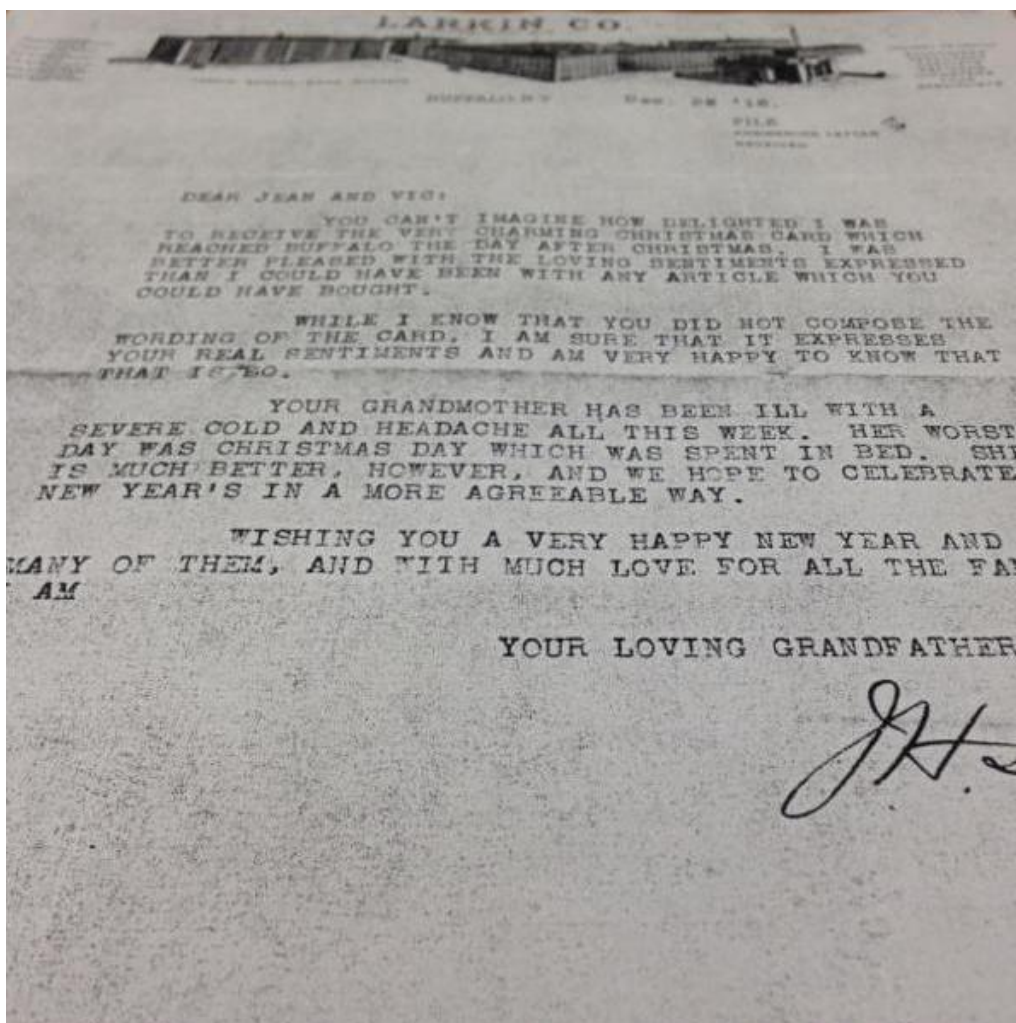 LARKIN CO.
BUFFALO, N.Y. Dec. 28 '18.
FILE
DEAR JEAN AND VIC:
YOU CAN'T IMAGINE HOW DELIGHTED I WAS
TO RECEIVE THE VERY CHARMING CHRISTMAS CARD WHICH
REACHED BUFFALO THE DAY AFTER CHRISTMAS. I WAS
BETTER PLEASED WITH THE LOVING SENTIMENTS EXPRESSED
THAN I COULD HAVE BEEN WITH ANY ARTICLE WHICH YOU
COULD HAVE BOUGHT.
WHILE I KNOW THAT YOU DID NOT COMPOSE THE
WORDING OF THE CARD, I AM SURE THAT IT EXPRESSES
YOUR REAL SENTIMENTS AND AM VERY HAPPY TO KNOW THAT
THAT IS SO.
YOUR GRANDMOTHER HAS BEEN ILL WITH A
SEVERE COLD AND HEADACHE ALL THIS WEEK. HER WORST
DAY WAS CHRISTMAS DAY WHICH WAS SPENT IN BED. SHE
IS MUCH BETTER, HOWEVER, AND WE HOPE TO CELEBRATE
NEW YEAR'S IN A MORE AGREEABLE WAY.
WISHING YOU A VERY HAPPY NEW YEAR AND
MANY OF THEM, AND WITH MUCH LOVE FOR ALL THE FA
AM
YOUR LOVING GRANDFATHER
J.H.